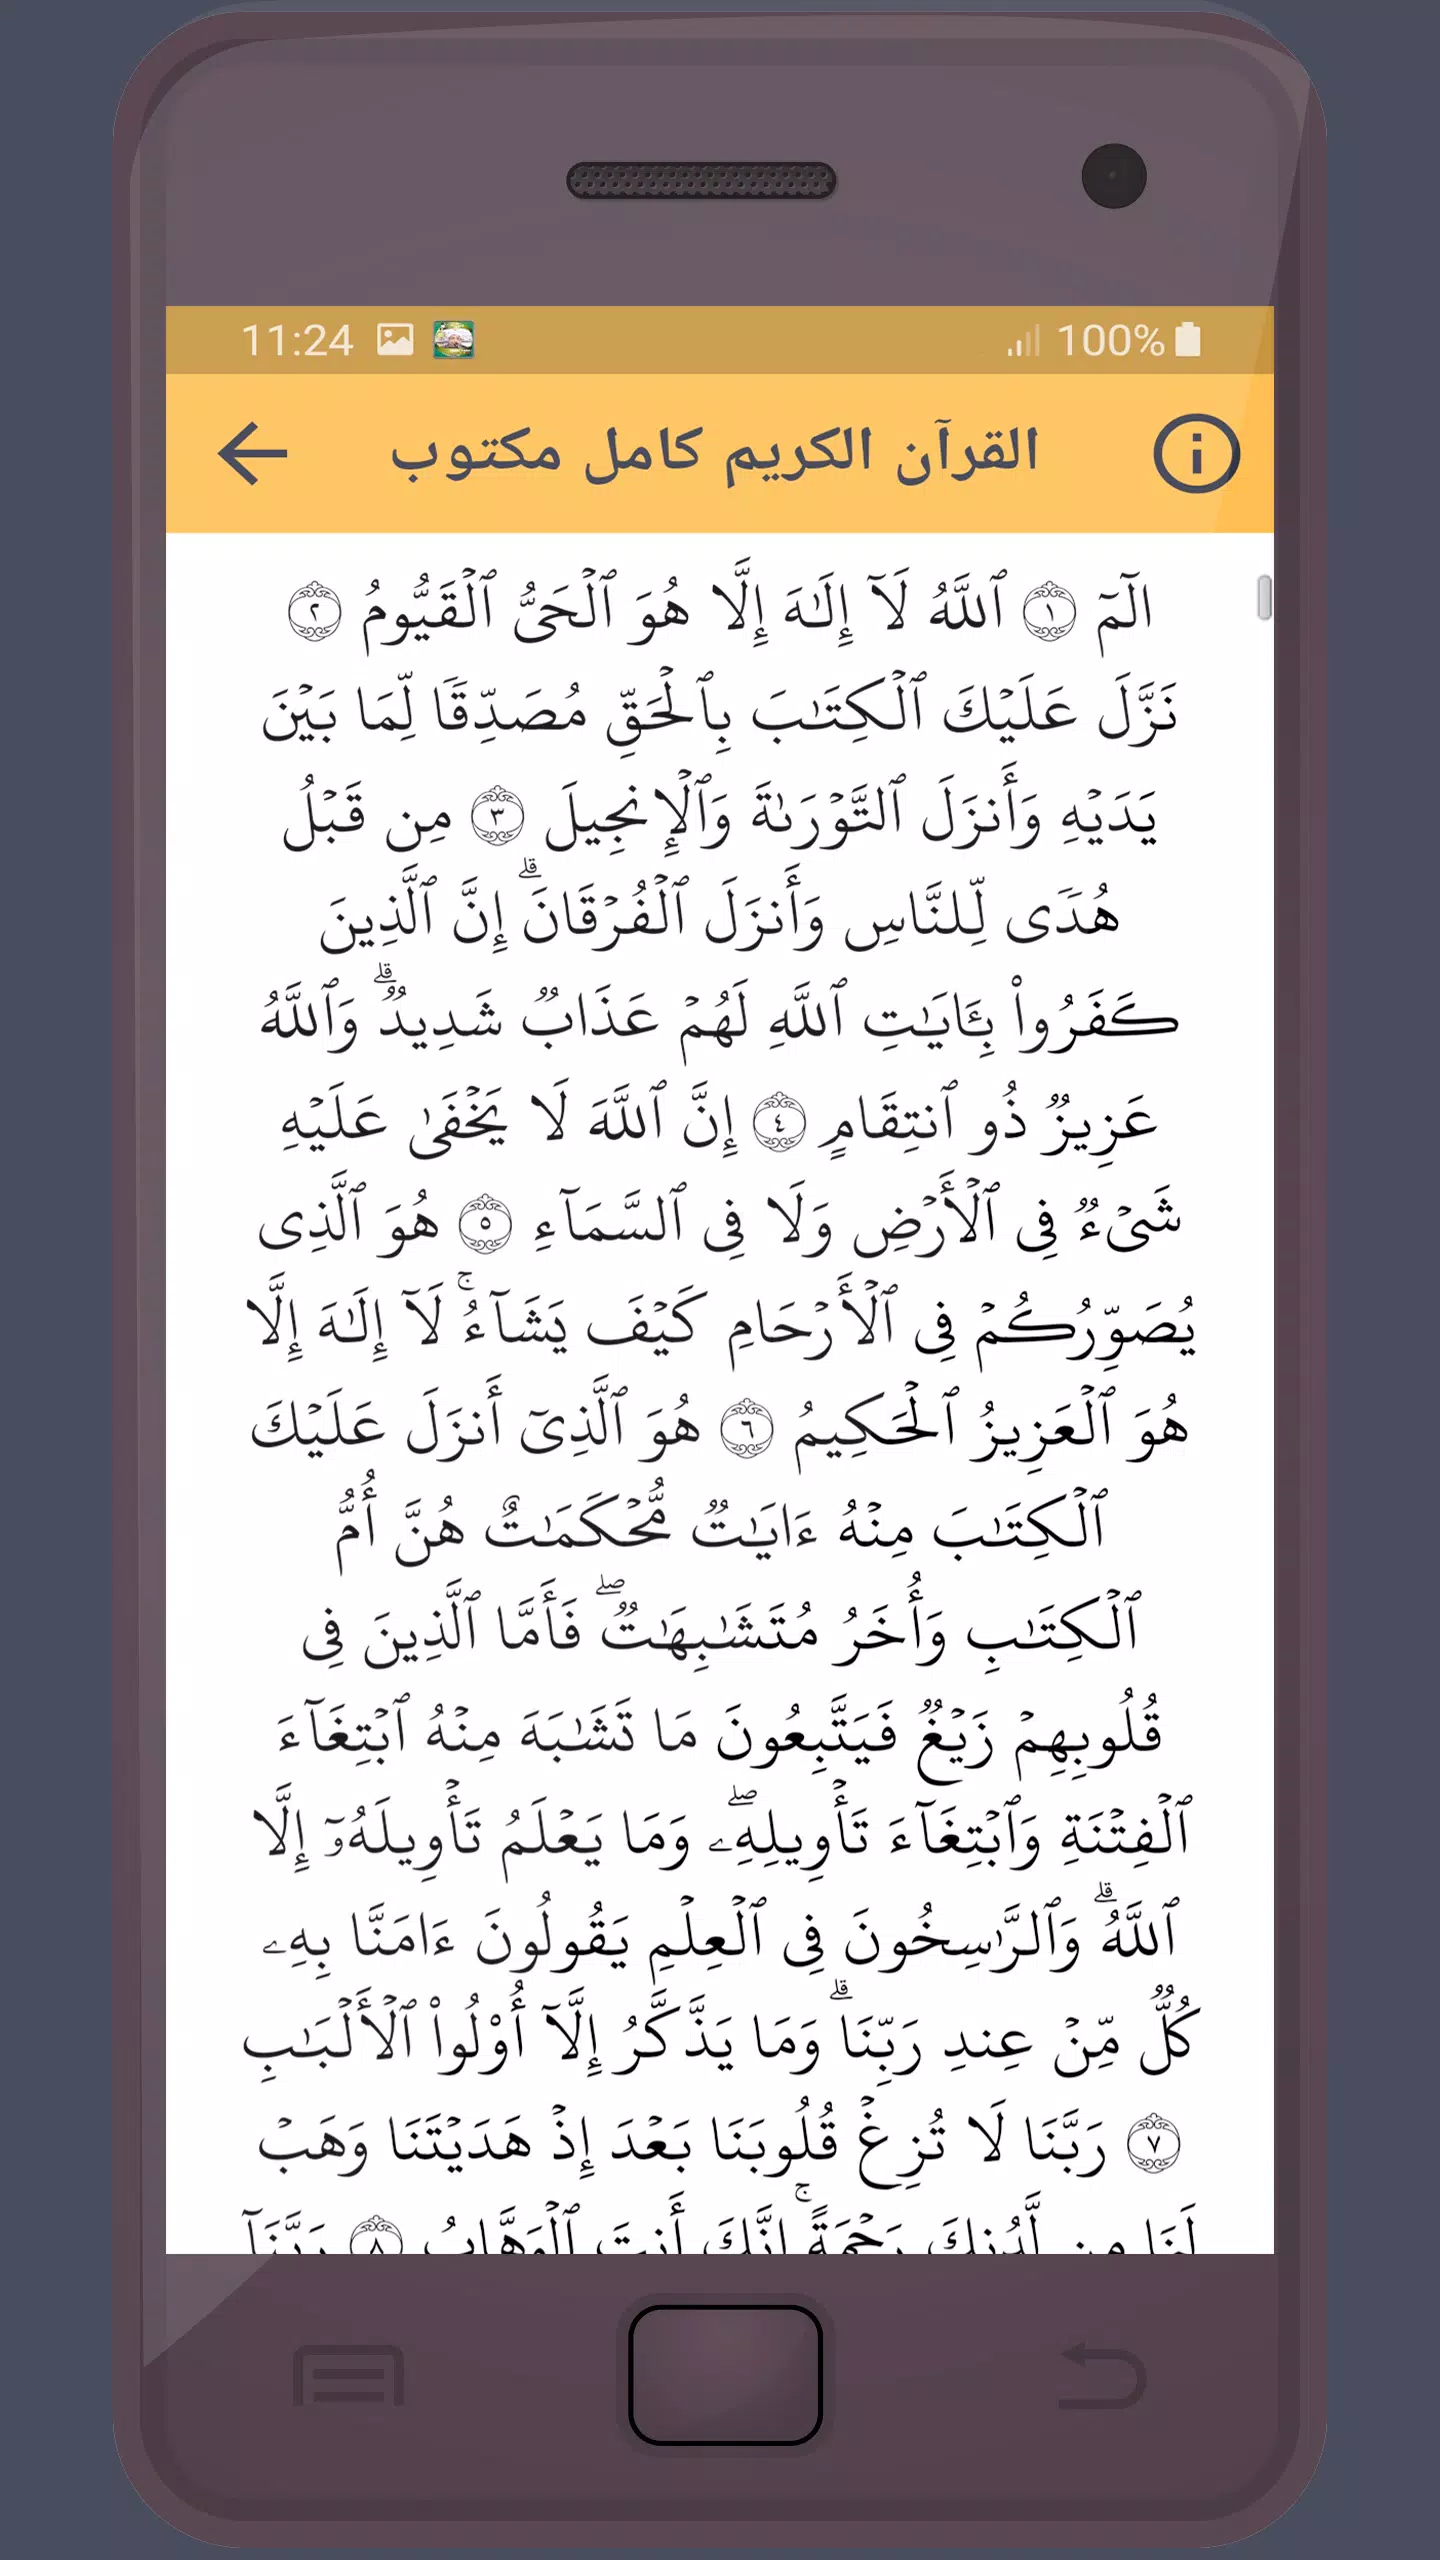 11:24
100%
القرآن الكريم كامل مكتوب
الٓمٓ ١ ٱللَّهُ لَآ إِلَٰهَ إِلَّا هُوَ ٱلۡحَىُّ ٱلۡقَيُّومُ ٢
نَزَّلَ عَلَيۡكَ ٱلۡكِتَٰبَ بِٱلۡحَقِّ مُصَدِّقࣰا لِّمَا بَيۡنَ
يَدَيۡهِ وَأَنزَلَ ٱلتَّوۡرَىٰةَ وَٱلۡإِنجِيلَ ٣ مِن قَبۡلُ
هُدࣰى لِّلنَّاسِ وَأَنزَلَ ٱلۡفُرۡقَانَۗ إِنَّ ٱلَّذِينَ
كَفَرُواْ بِـَٔايَٰتِ ٱللَّهِ لَهُمۡ عَذَابࣱ شَدِيدࣱۗ وَٱللَّهُ
عَزِيزࣱ ذُو ٱنتِقَامٍ ٤ إِنَّ ٱللَّهَ لَا يَخۡفَىٰ عَلَيۡهِ
شَىۡءࣱ فِى ٱلۡأَرۡضِ وَلَا فِى ٱلسَّمَآءِ ٥ هُوَ ٱلَّذِى
يُصَوِّرُكُمۡ فِى ٱلۡأَرۡحَامِ كَيۡفَ يَشَآءُۚ لَآ إِلَٰهَ إِلَّا
هُوَ ٱلۡعَزِيزُ ٱلۡحَكِيمُ ٦ هُوَ ٱلَّذِىٓ أَنزَلَ عَلَيۡكَ
ٱلۡكِتَٰبَ مِنۡهُ ءَايَٰتࣱ مُّحۡكَمَٰتٌ هُنَّ أُمُّ
ٱلۡكِتَٰبِ وَأُخَرُ مُتَشَٰبِهَٰتࣱۖ فَأَمَّا ٱلَّذِينَ فِى
قُلُوبِهِمۡ زَيۡغࣱ فَيَتَّبِعُونَ مَا تَشَٰبَهَ مِنۡهُ ٱبۡتِغَآءَ
ٱلۡفِتۡنَةِ وَٱبۡتِغَآءَ تَأۡوِيلِهِۦۖ وَمَا يَعۡلَمُ تَأۡوِيلَهُۥٓ إِلَّا
ٱللَّهُۗ وَٱلرَّٰسِخُونَ فِى ٱلۡعِلۡمِ يَقُولُونَ ءَامَنَّا بِهِۦ
كُلࣱّ مِّنۡ عِندِ رَبِّنَاۗ وَمَا يَذَّكَّرُ إِلَّآ أُوْلُواْ ٱلۡأَلۡبَٰبِ
٧ رَبَّنَا لَا تُزِغۡ قُلُوبَنَا بَعۡدَ إِذۡ هَدَيۡتَنَا وَهَبۡ
لَنَا مِن لَّدُنكَ رَحۡمَةًۚ إِنَّكَ أَنتَ ٱلۡوَهَّابُ ٨ رَبَّنَآ